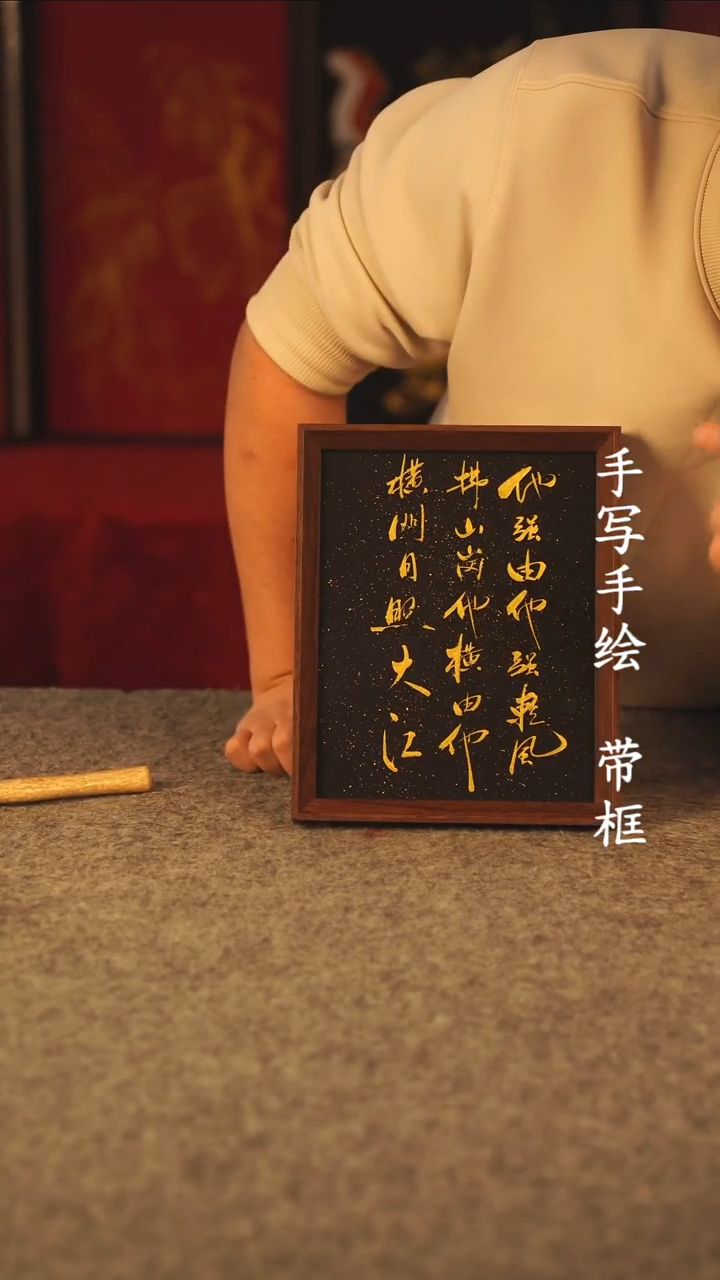 他强由他强輕风
拂山岗他横由他
横明月照大江
手写手绘 带框